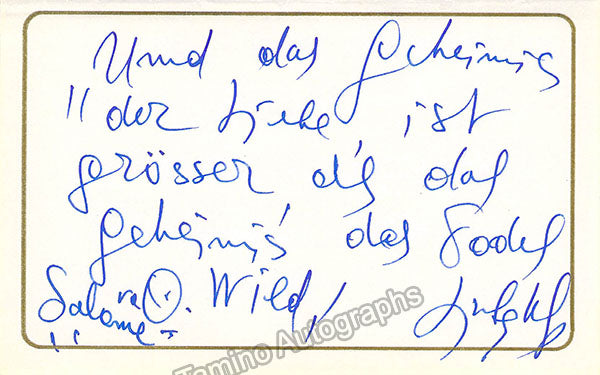 Und das Geheimnis
"der Liebe, ist
grösser als das
Geheimnis das Todes
Salomé" O. Wild
Tamino Autographs